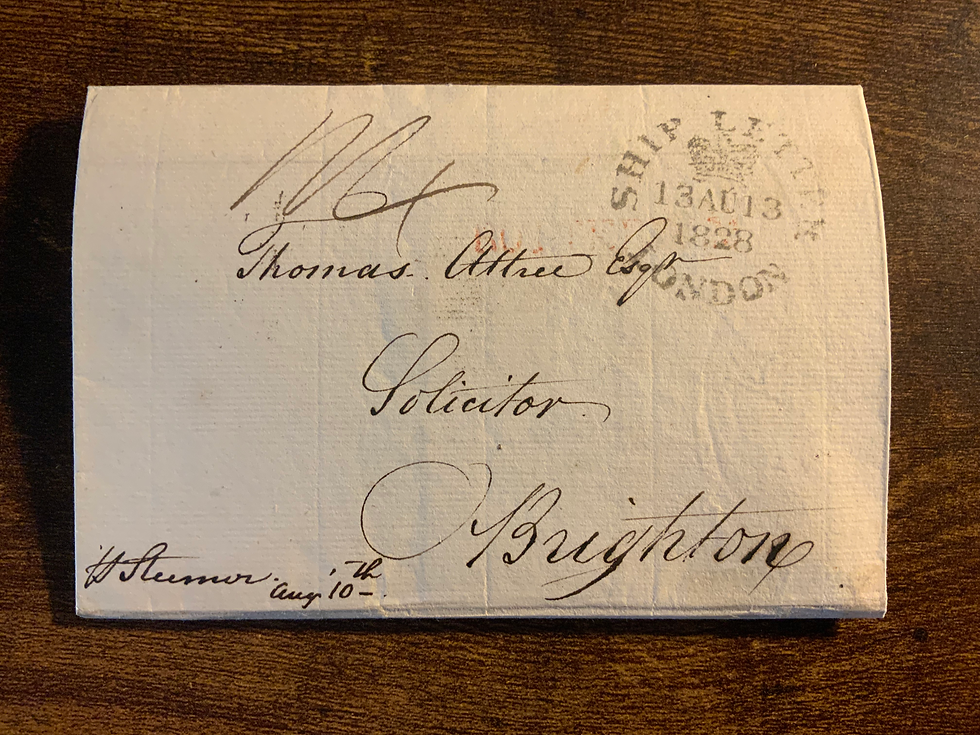 SHIP LETTER
13AU13
1828
LONDON
Thomas Attree Esqr
Solicitor
Brighton
Steemer
Augt 10th